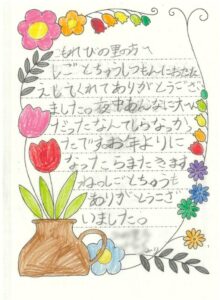 もれびの里の方へ
しごとちゅうしつもんにおこた
えしてくれてありがとうござ
いました。夜中あんなに大へん
だったなんてしらなかっ
たですお年よりに
なったらまたきます。
おしごとちゅうも
ありがとうござ
いました。